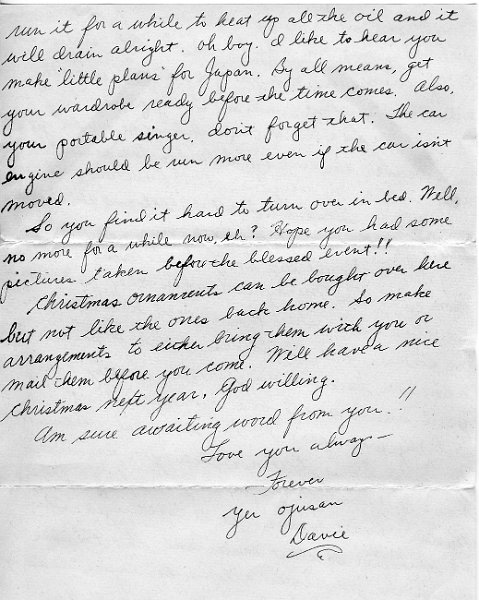 run it for a while to heat up all the oil and it
will drain alright. Oh boy. I like to hear you
make "little plans" for Japan. By all means, get
your wardrobe ready before the time comes. Also,
your portable singer, don't forget that. The car
engine should be run more even if the car isn't
moved.
So you find it hard to turn over in bed. Well,
no more for a while now, eh? Hope you had some
pictures taken before the blessed event!!
Christmas ornaments can be bought over here
but not like the ones back home. So make
arrangements to either bring them with you or
mail them before you come. We'll have a nice
Christmas next year, God willing.
Am sure awaiting word from you!!
Love you always—
Forever
Yer ojisan
Davie